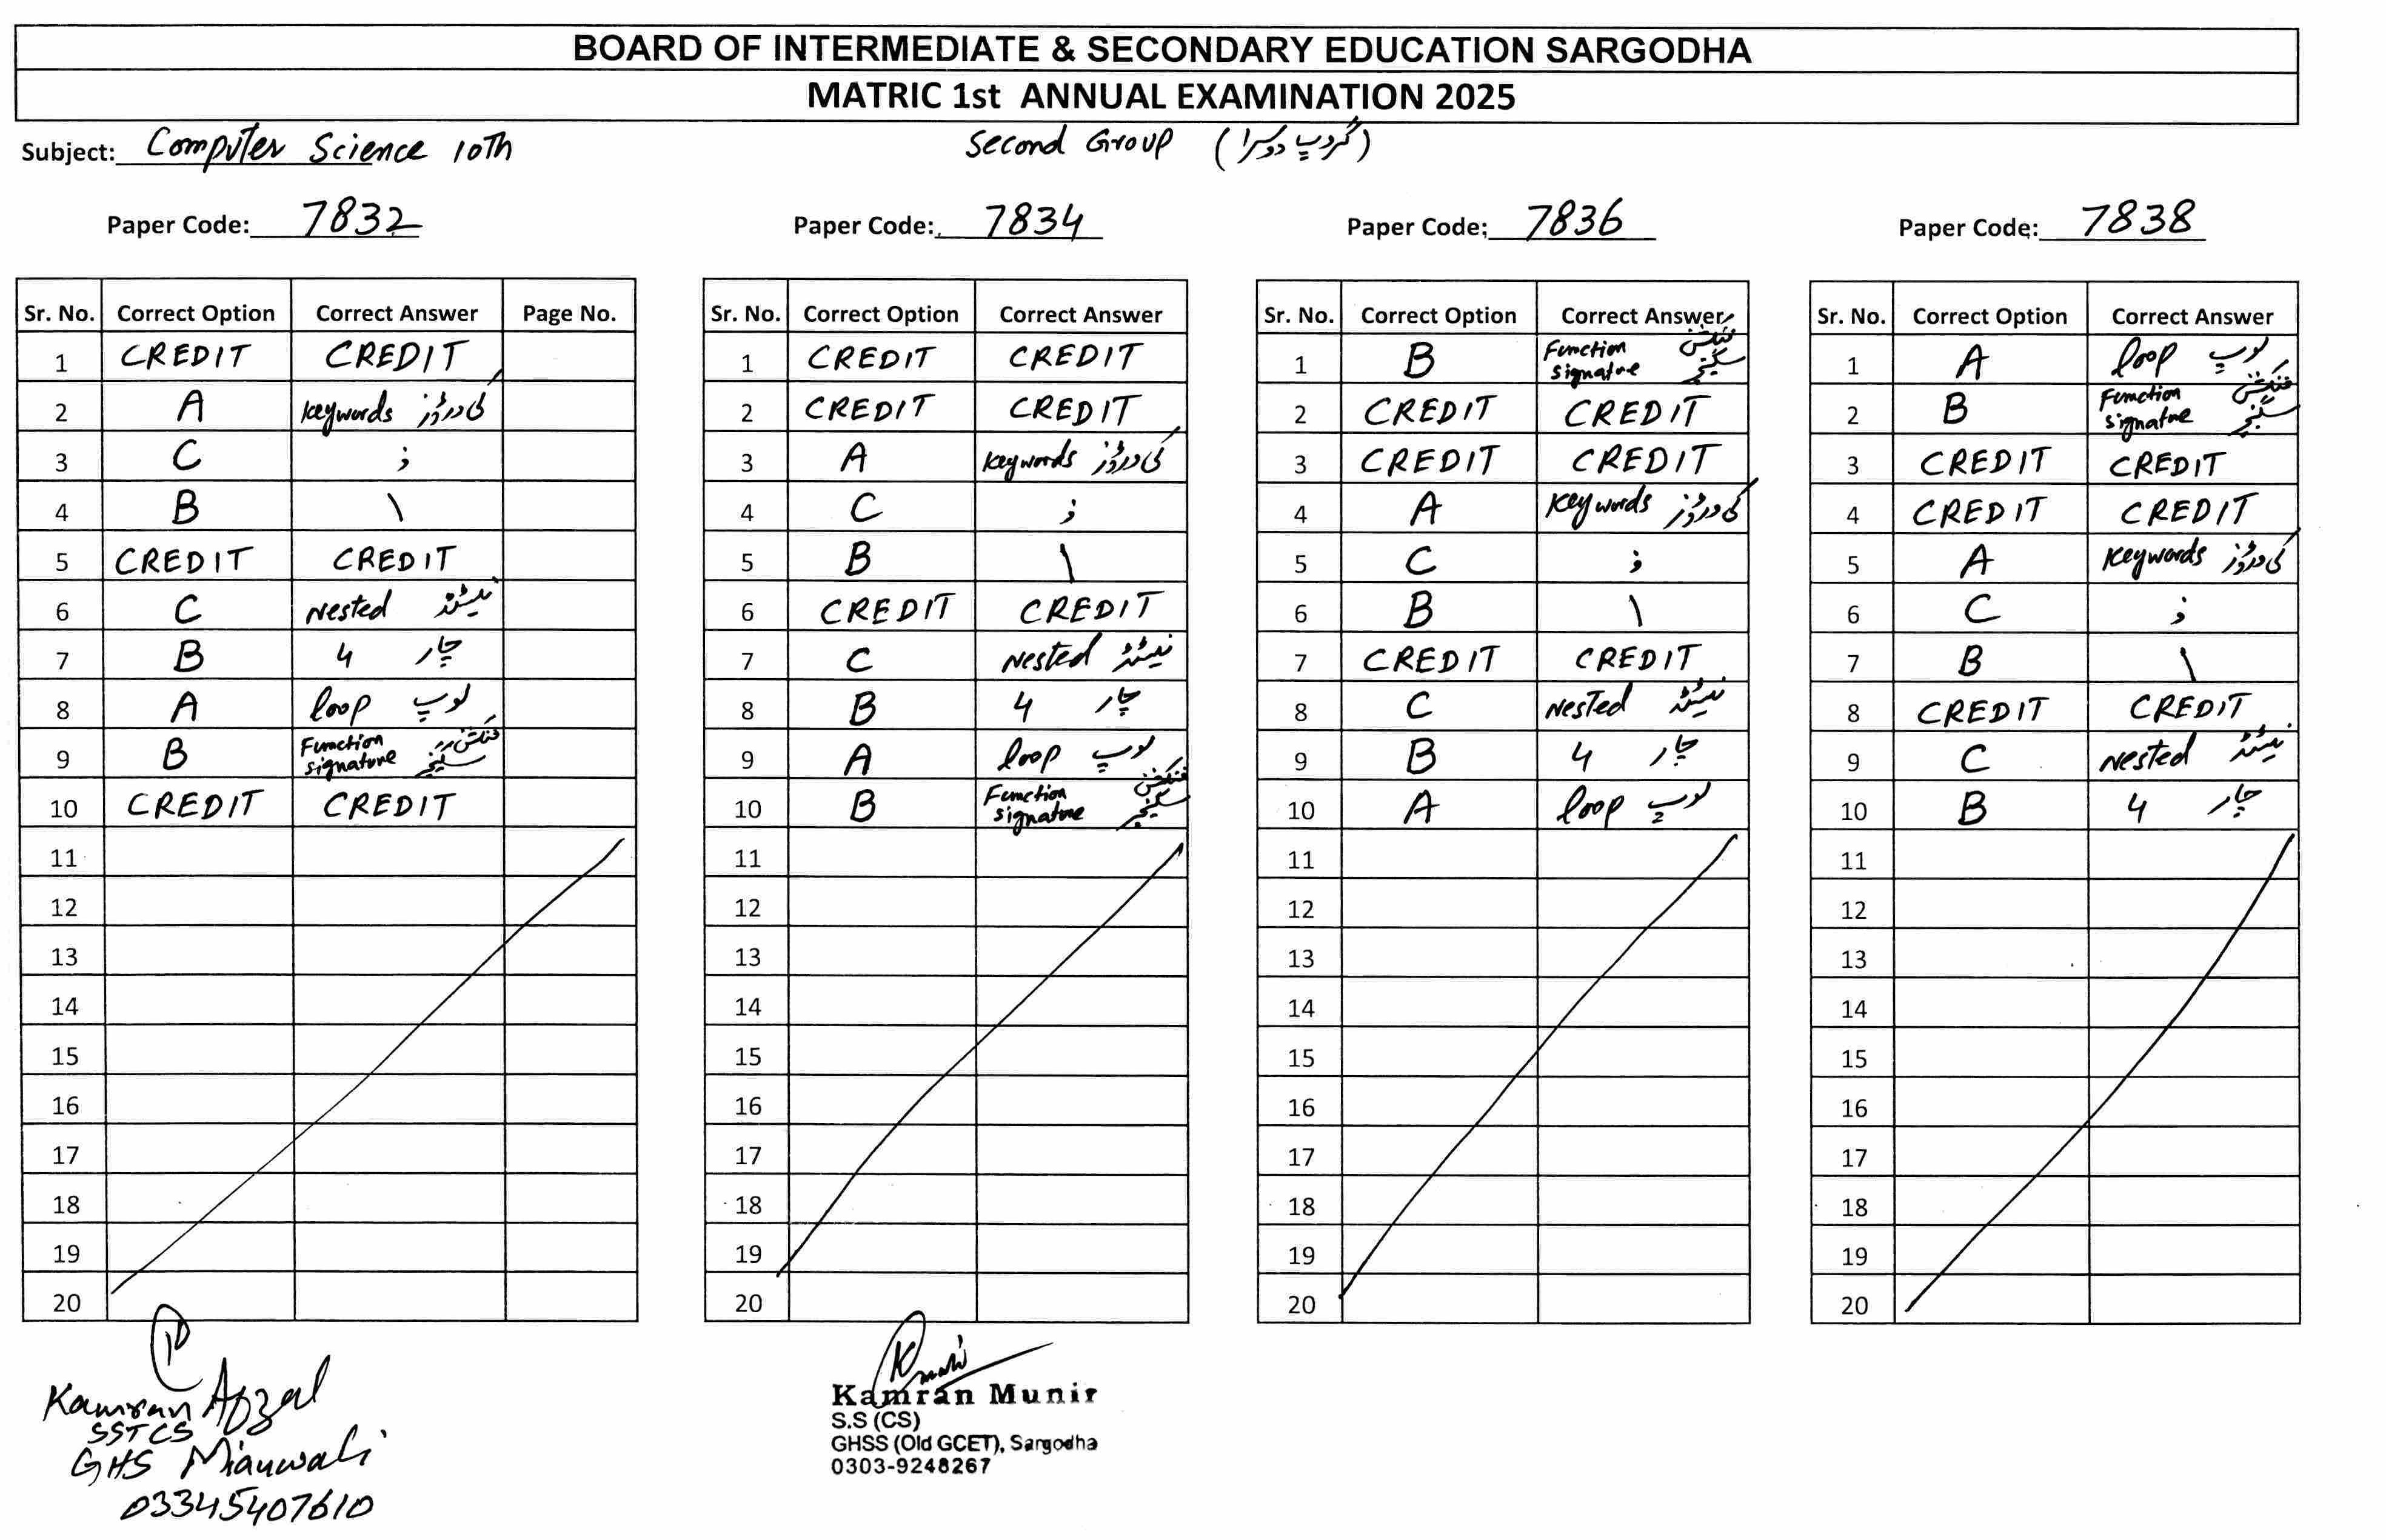 BOARD OF INTERMEDIATE & SECONDARY EDUCATION SARGODHA
MATRIC 1st ANNUAL EXAMINATION 2025
Subject: Computer Science 10Th Second Group (گروپ دوسرا)
Paper Code: 7832
Sr. No. Correct Option Correct Answer Page No.
1 CREDIT CREDIT
2 A Keywords کی ورڈز
3 C ;
4 B \
5 CREDIT CREDIT
6 C Nested نیسٹڈ
7 B 4 چار
8 A loop لوپ
9 B Function signature فنکشن سگنیچر
10 CREDIT CREDIT
11
12
13
14
15
16
17
18
19
20
Paper Code: 7834
Sr. No. Correct Option Correct Answer
1 CREDIT CREDIT
2 CREDIT CREDIT
3 A Keywords کی ورڈز
4 C ;
5 B \
6 CREDIT CREDIT
7 C Nested نیسٹڈ
8 B 4 چار
9 A loop لوپ
10 B Function signature فنکشن سگنیچر
11
12
13
14
15
16
17
18
19
20
Paper Code: 7836
Sr. No. Correct Option Correct Answer
1 B Function signature فنکشن سگنیچر
2 CREDIT CREDIT
3 CREDIT CREDIT
4 A Keywords کی ورڈز
5 C ;
6 B \
7 CREDIT CREDIT
8 C Nested نیسٹڈ
9 B 4 چار
10 A loop لوپ
11
12
13
14
15
16
17
18
19
20
Paper Code: 7838
Sr. No. Correct Option Correct Answer
1 A loop لوپ
2 B Function signature فنکشن سگنیچر
3 CREDIT CREDIT
4 CREDIT CREDIT
5 A Keywords کی ورڈز
6 C ;
7 B \
8 CREDIT CREDIT
9 C Nested نیسٹڈ
10 B 4 چار
11
12
13
14
15
16
17
18
19
20
Kamran Afzal
SSTCS
GHS Mianwali
03345407610
Kamran Munir
S.S (CS)
GHSS (Old GCET), Sargodha
0303-9248267